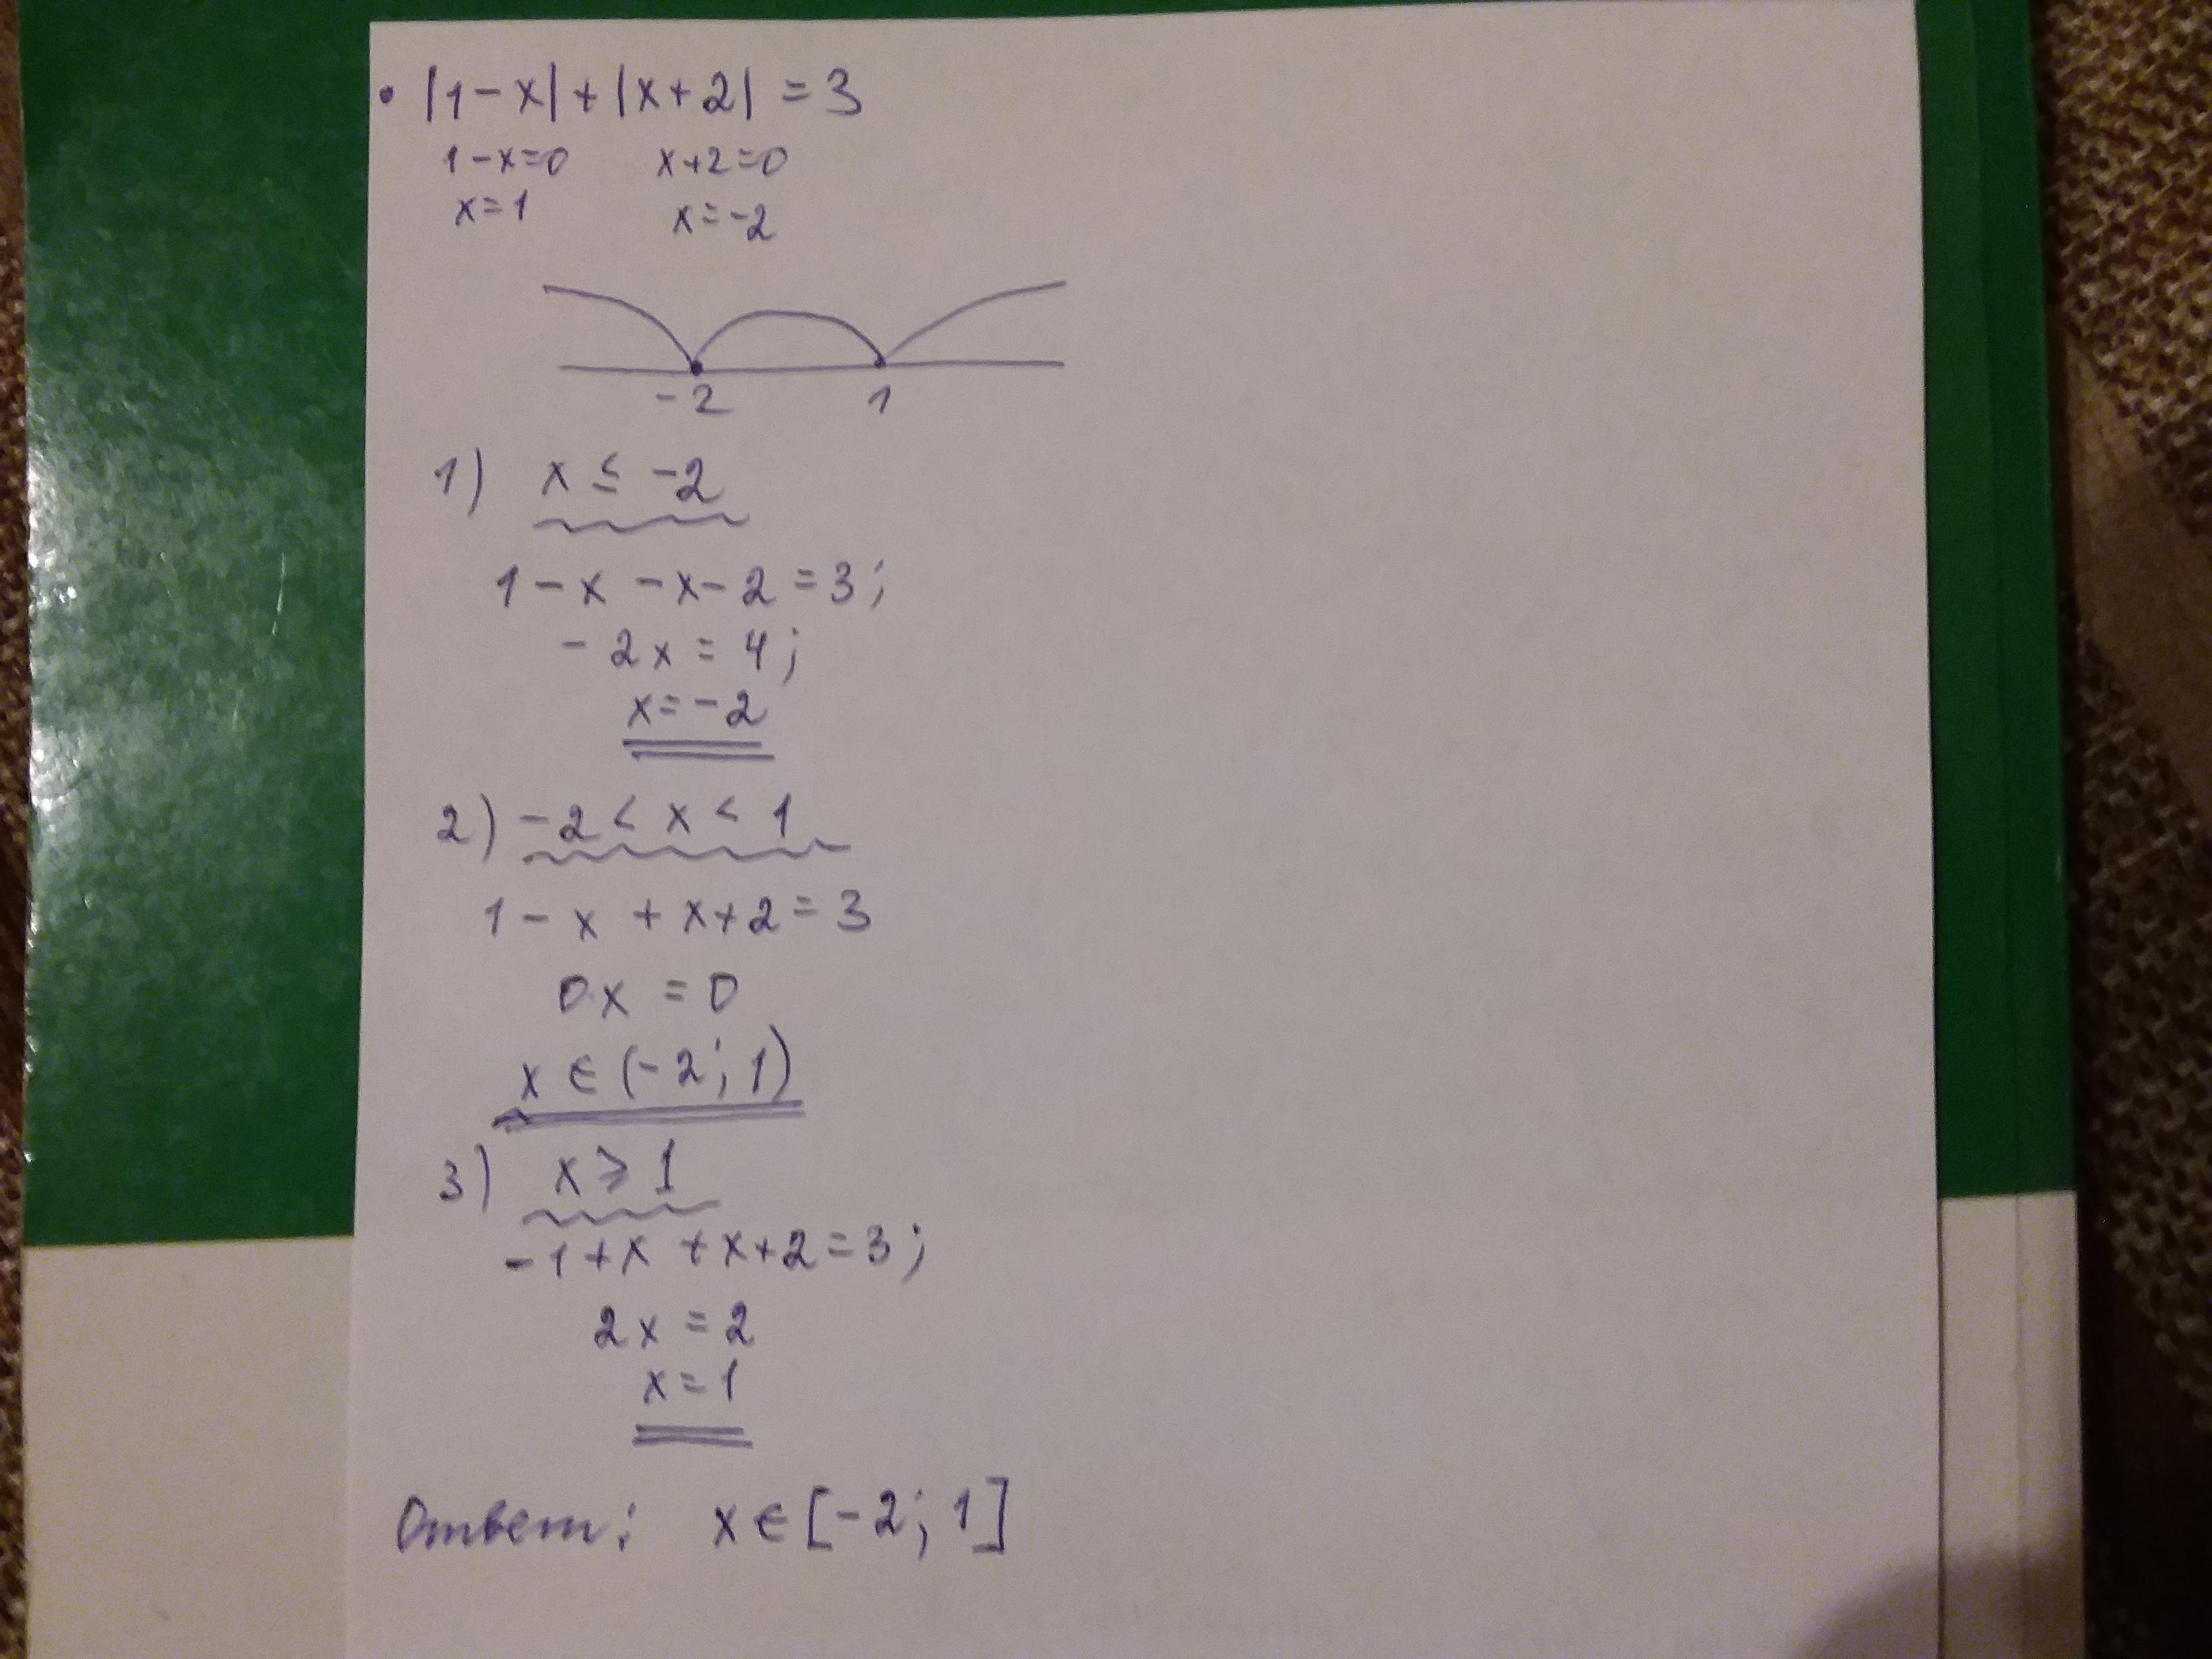 • |1-x|+|x+2| = 3
1-x=0 x+2=0
x=1 x=-2
-2 1
1) x ≤ -2
1-x-x-2=3;
-2x=4;
x=-2
2) -2<x<1
1-x+x+2=3
0·x=0
x∈(-2;1)
3) x⩾1
-1+x+x+2=3;
2x=2
x=1
Ответ: x∈[-2;1]